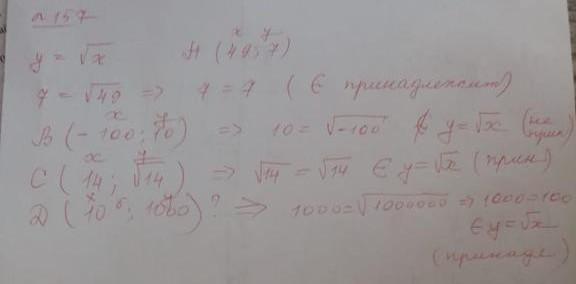 № 157
y = √x A (49; 7)
7 = √49 => 7 = 7 (∈ принадлежит)
B (-100; 10) => 10 = √-100 ∉ y = √x (не прин)
C (14; √14) => √14 = √14 ∈ y = √x (прин)
D (10⁶; 1000)? => 1000 = √1000000 => 1000 = 100
∈ y = √x
(принадл)